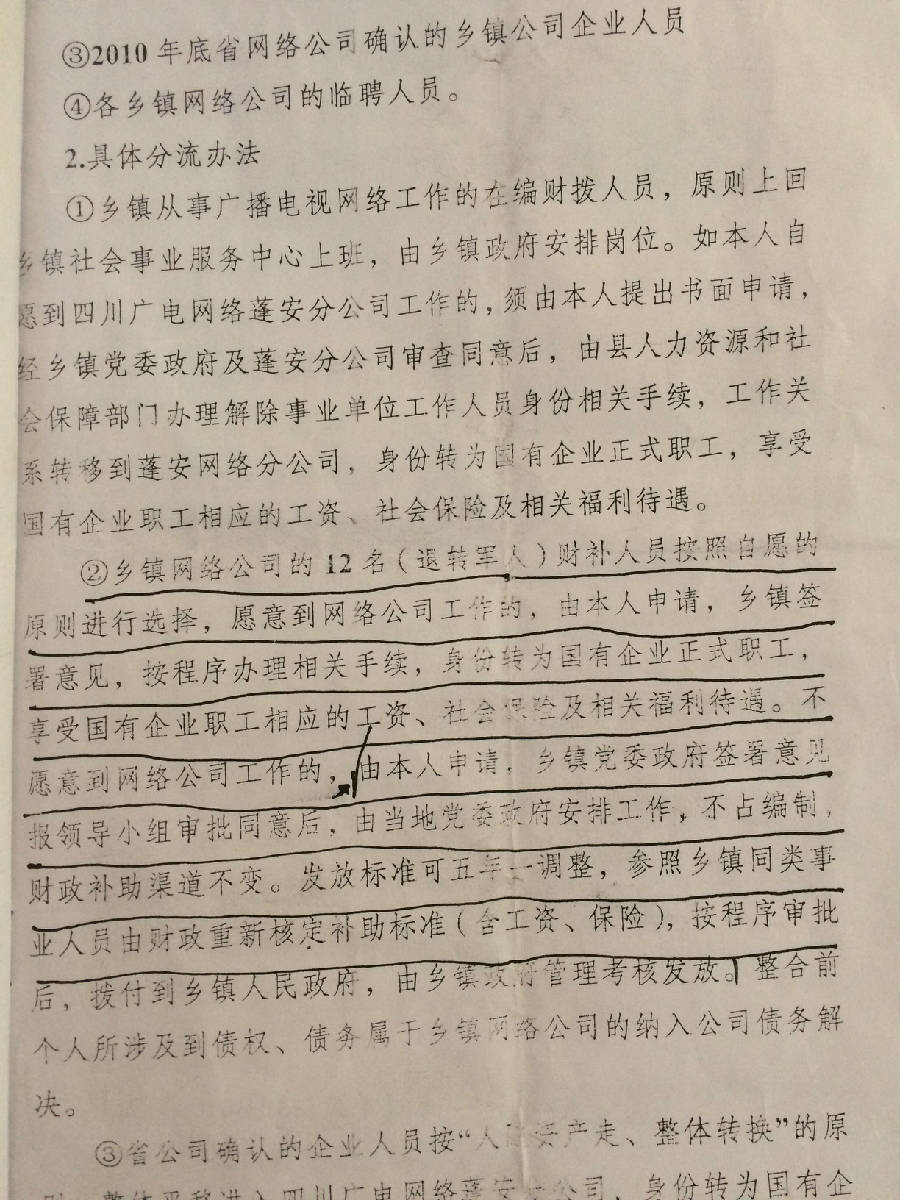 ③2010年底省网络公司确认的乡镇公司企业人员
④各乡镇网络公司的临聘人员。
2.具体分流办法
①乡镇从事广播电视网络工作的在编财拨人员，原则上回
乡镇社会事业服务中心上班，由乡镇政府安排岗位。如本人自
愿到四川广电网络蓬安分公司工作的，须由本人提出书面申请，
经乡镇党委政府及蓬安分公司审查同意后，由县人力资源和社
会保障部门办理解除事业单位工作人员身份相关手续，工作关
系转移到蓬安网络分公司，身份转为国有企业正式职工，享受
国有企业职工相应的工资、社会保险及相关福利待遇。
②乡镇网络公司的12名（退转军人）财补人员按照自愿的
原则进行选择，愿意到网络公司工作的，由本人申请，乡镇签
署意见，按程序办理相关手续，身份转为国有企业正式职工，
享受国有企业职工相应的工资、社会保险及相关福利待遇。不
愿意到网络公司工作的，由本人申请，乡镇党委政府签署意见
报领导小组审批同意后，由当地党委政府安排工作，不占编制，
财政补助渠道不变。发放标准可五年一调整，参照乡镇同类事
业人员由财政重新核定补助标准（含工资、保险），按程序审批
后，拨付到乡镇人民政府，由乡镇政府管理考核发放。整合前
个人所涉及到债权、债务属于乡镇网络公司的纳入公司债务解
决。
③省公司确认的企业人员按“人随资产走、整体转换”的原
则，整体平移进入四川广电网络蓬安分公司，身份转为国有企